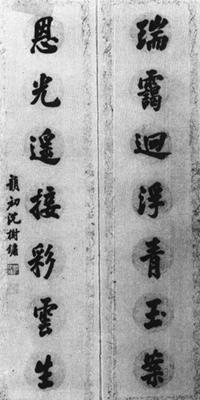 瑞靄迴浮青玉案
恩光遙接彩雲生
韻初沈樹鏞